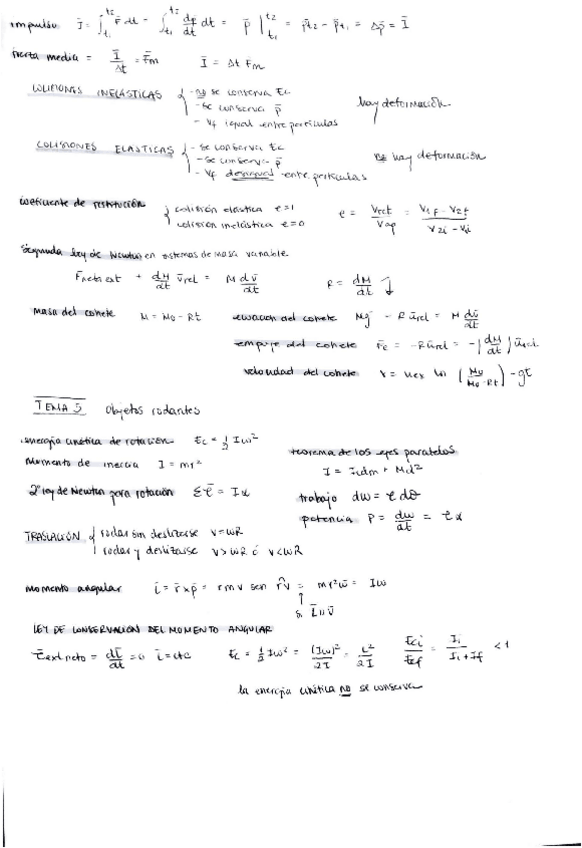 impulso J̄ = ∫t₁^t₂ F̄ dt = ∫t₁^t₂ dp̄/dt dt = p̄ |t₁^t₂ = p̄t₂ - p̄t₁ = Δp̄ = Ī
fuerza media = Ī/Δt = F̄m Ī = Δt Fm
COLISIONES INELÁSTICAS { - no se conserva Ec
- se conserva p̄ hay deformación
- Vf igual entre partículas
COLISIONES ELÁSTICAS { - se conserva Ec
- se conserva p̄ no hay deformación
- Vf desigual entre partículas
coeficiente de restitución { colisión elástica e=1 e = Vret/Vap = V1f - V2f / V2i - V1i
colisión inelástica e=0
Segunda ley de Newton en sistemas de masa variable
Fneta ext + dM/dt v̄rel = M dv̄/dt R = dM/dt
masa del cohete M = M₀ - Rt ecuación del cohete Mḡ - R ūrel = M dv̄/dt
empuje del cohete F̄e = -Rūrel = -|dM/dt| ūrel
velocidad del cohete V = uex ln (M₀/M₀-Rt) - gt
TEMA 5 Objetos rodantes
energía cinética de rotación Ec = 1/2 Iω² teorema de los ejes paralelos
Momento de inercia I = mr² I = Icdm + Md²
2ª ley de Newton para rotación Στ̄ = Iα trabajo dw = τ dθ
potencia P = dw/dt = τ α
TRASLACIÓN { rodar sin deslizarse V = ωR
rodar y deslizarse V > ωR ó V < ωR
momento angular L̄ = r̄ x p̄ = r m v sen r̂v = mr²ω̄ = Iω
↑
si L̄ ∥ v̄
LEY DE CONSERVACIÓN DEL MOMENTO ANGULAR
τ̄ext neto = dL̄/dt = 0 L̄ = cte Ec = 1/2 Iω² = (Iω)²/2I = L²/2I Eci/Ecf = Ii/Ii+If < 1
la energía cinética no se conserva